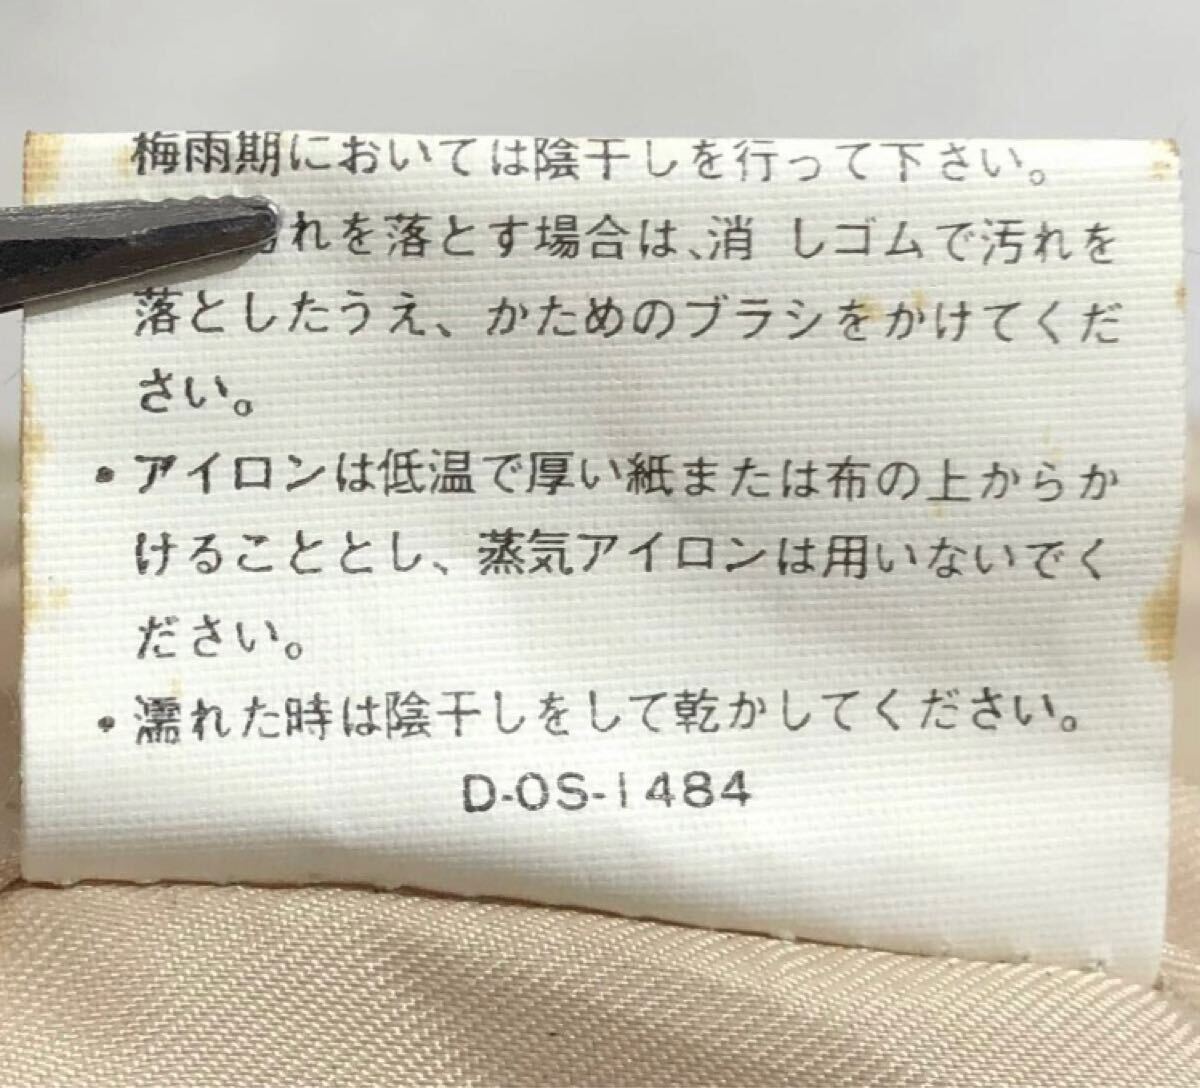 梅雨期においては陰干しを行って下さい。
れを落とす場合は、消しゴムで汚れを
落としたうえ、かためのブラシをかけてくだ
さい。
・アイロンは低温で厚い紙または布の上からか
けることとし、蒸気アイロンは用いないでく
ださい。
・濡れた時は陰干しをして乾かしてください。
D-OS-1484